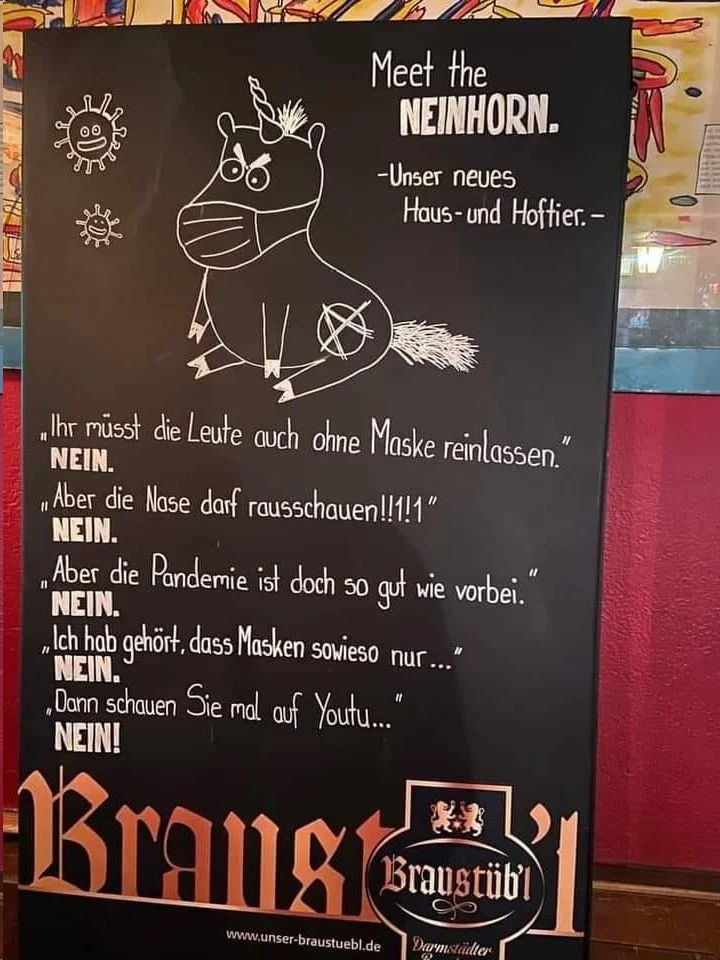 Meet the
NEINHORN.
-Unser neues
Haus- und Hoftier.-
„Ihr müsst die Leute auch ohne Maske reinlassen.“
NEIN.
„Aber die Nase darf rausschauen!!1!1“
NEIN.
„Aber die Pandemie ist doch so gut wie vorbei.“
NEIN.
„Ich hab gehört, dass Masken sowieso nur...“
NEIN.
„Dann schauen Sie mal auf Youtu...“
NEIN!
Braust 'l
Braustüb'l
www.unser-braustuebl.de
Darmstädter